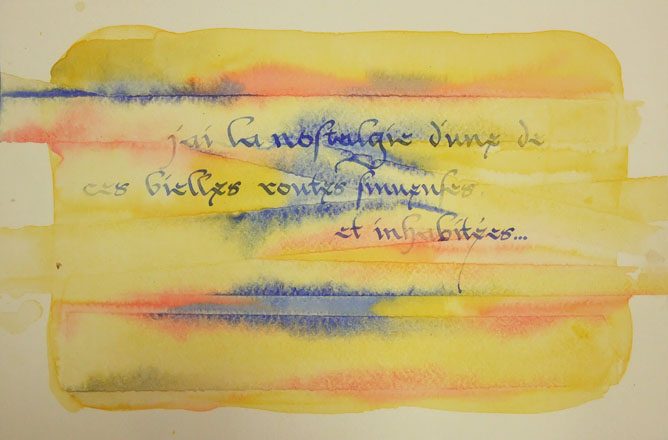 j'ai la nostalgie d'une de
ces vielles routes sinueuses
et inhabitées...